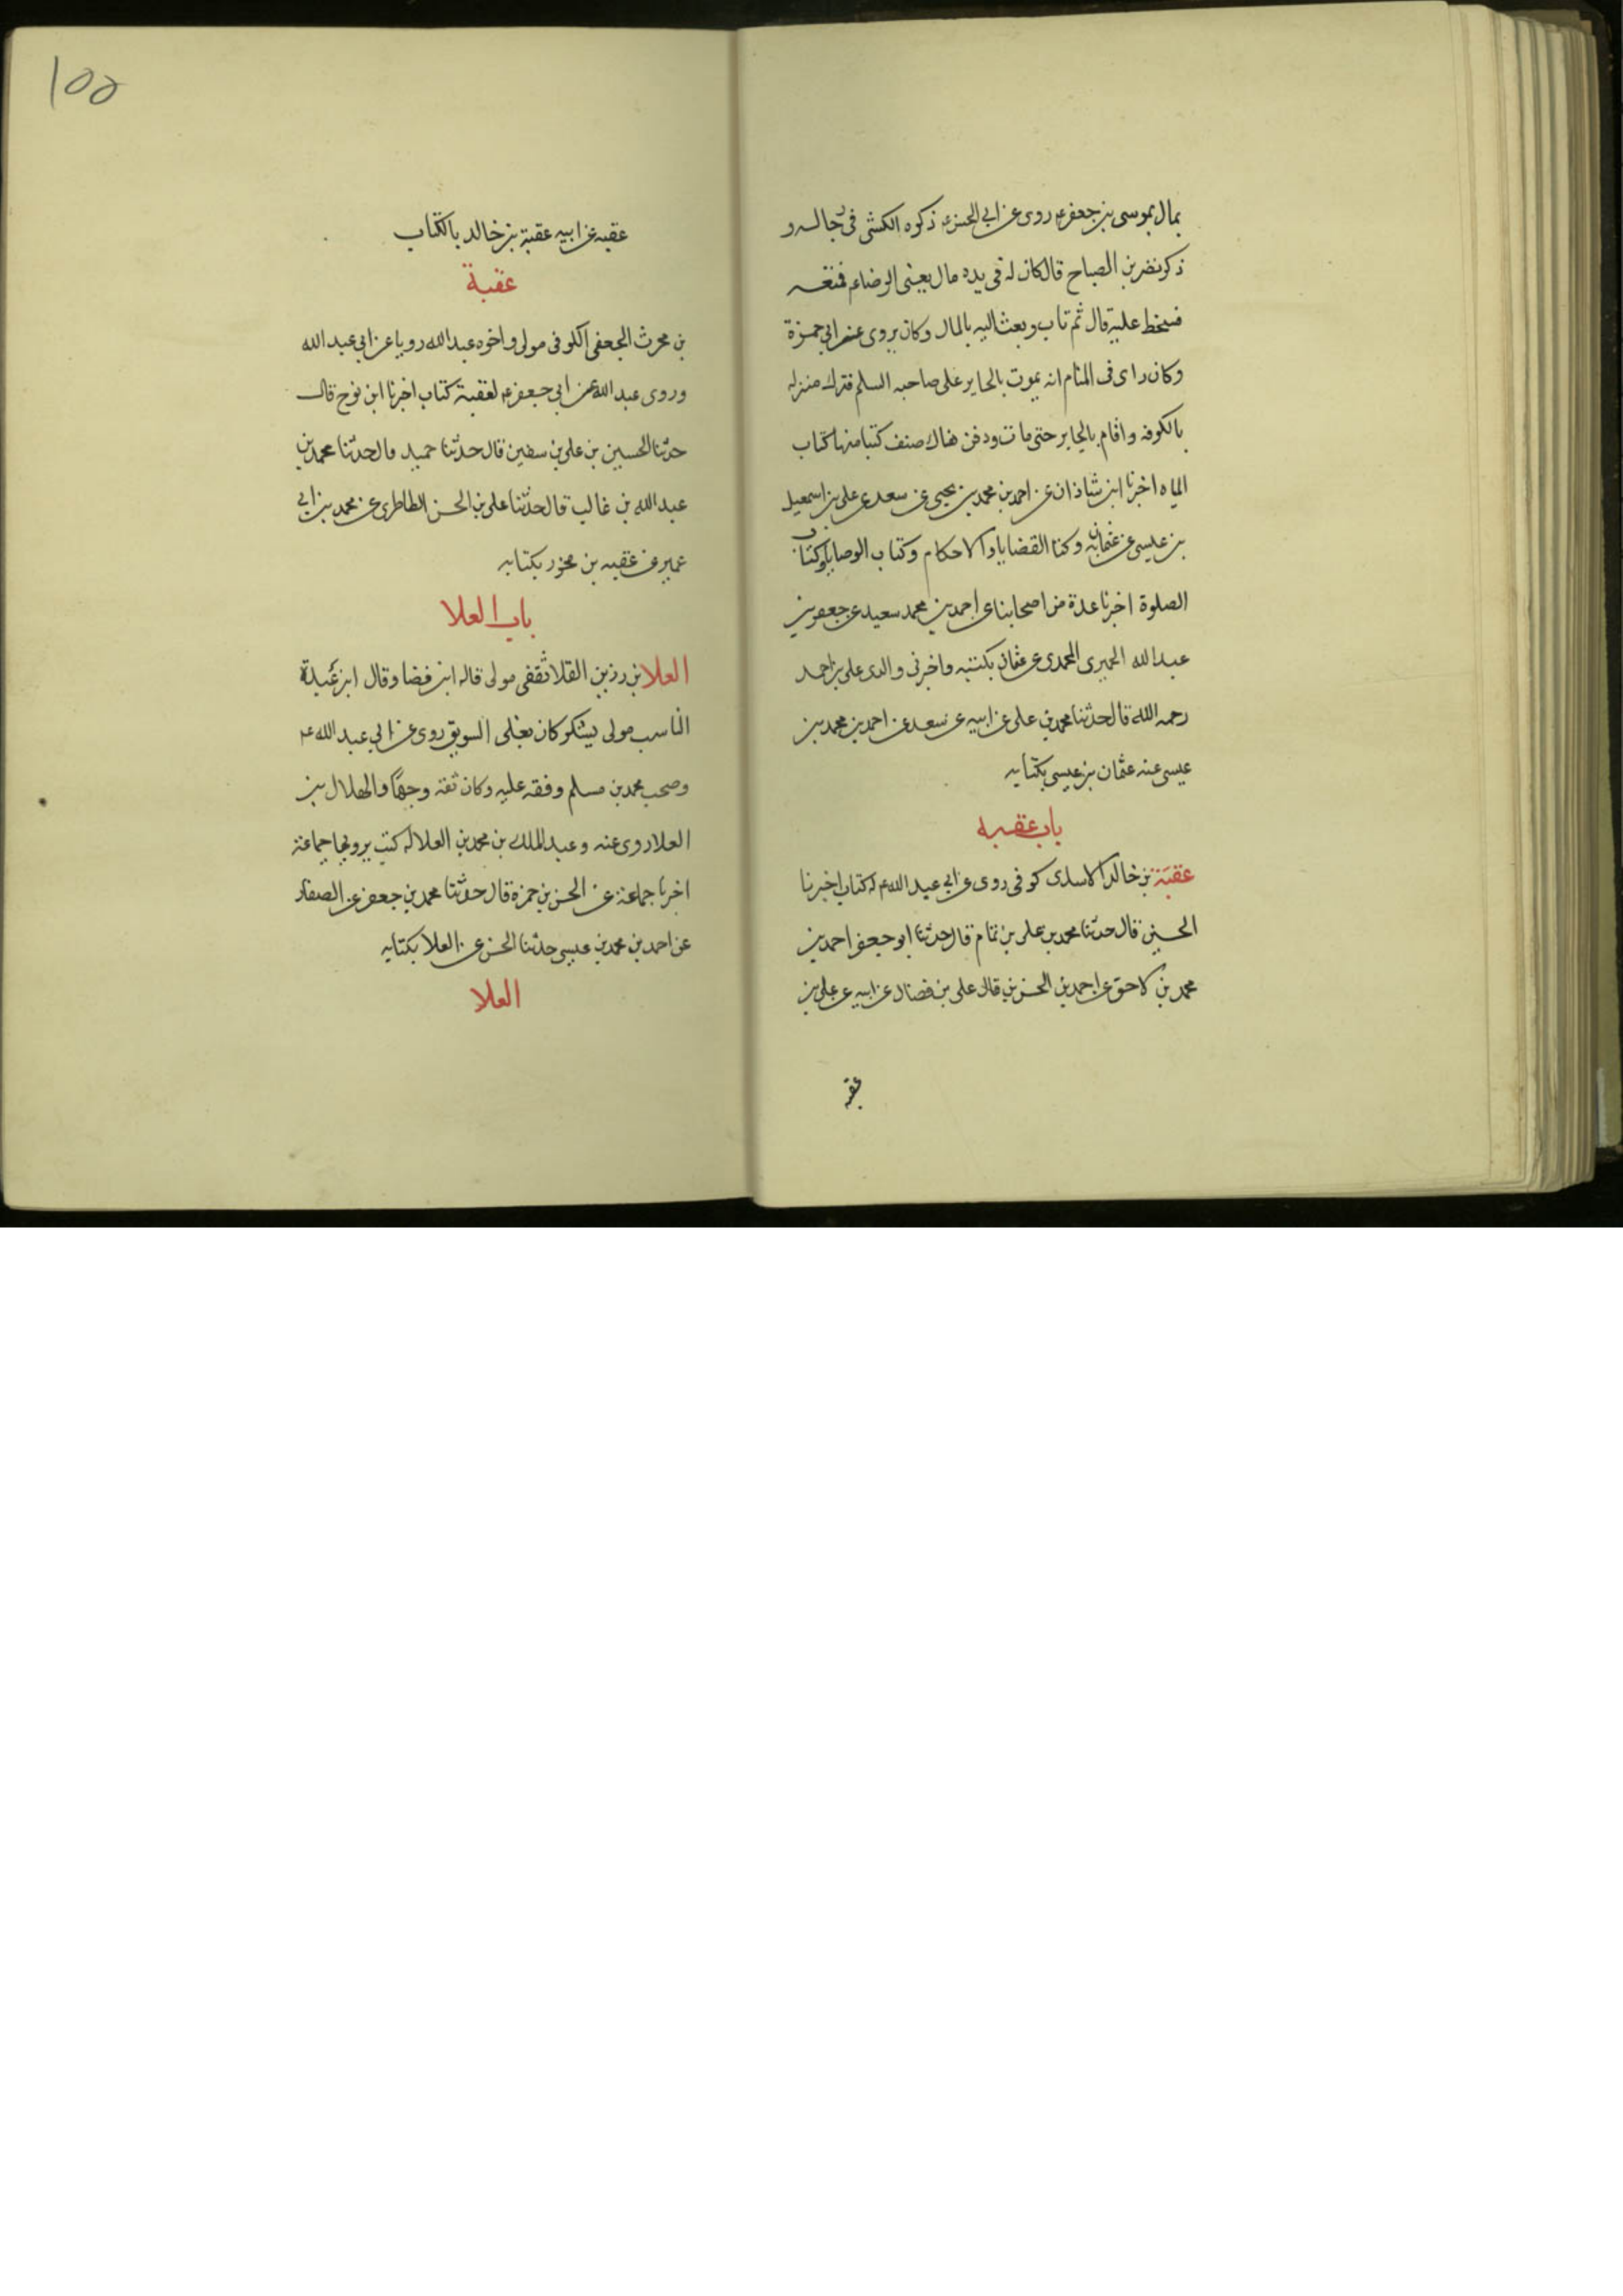 بمال بموسى بن جعفر ع روى عن ابي الحسن ع ذكره الكشى فى رجاله و
ذكر نضر بن الصباح قال كان له فى يده مال يعنى الرضا ع فمنعه
فسخط عليه قال ثم تاب وبعث اليه بالمال وكان يروى عن ابي حمزة
وكان راى فى المنام انه يموت بالحاير على صاحبه السلم فترك منزله
بالكوفه واقام بالحاير حتى مات ودفن هناك صنف كتبا منها كتاب
المياه اخبرنا ابن شاذان عن احمد بن محمد بن يحيى عن سعد عن على بن اسمعيل
بن عيسى عن عثمان به وكتا القضايا والاحكام وكتاب الوصايا وكتاب
الصلوة اخبرنا عدة من اصحابنا عن احمد بن محمد سعيد عن جعفر بن
عبد الله المحمدى عن عثمان بكتبه واخبرنى والدى على بن احمد
رحمه الله قال حدثنا محمد بن على عن ابيه عن سعد عن احمد بن محمد بن
عيسى عنه عثمان بن عيسى بكتابه
باب عقبه
عقبة بن خالد الاسدى كوفى روى عن ابي عبد الله ع له كتاب اخبرنا
الحسين قال حدثنا محمد بن على بن تمام قال حدثنا ابو جعفر احمد بن
محمد بن لاحق عن احمد بن الحسن بن قال على بن فضال عن ابيه عن على بن
عقبه
١٥٥
عقبه عن ابيه عقبة بن خالد بالكتاب
عقبة
بن محرث الجعفى الكوفى مولى واخوه عبد الله رويا عن ابي عبد الله
وروى عبد الله عن ابي جعفر ع لعقبة كتاب اخبرنا ابن نوح قال
حدثنا الحسين بن على بن سفين قال حدثنا حميد قال حدثنا محمد بن
عبد الله بن غالب قال حدثنا على بن الحسن الطاطرى عن محمد بن ابي
عمير عن عقبه بن محرز بكتابه
باب العلا
العلا بن رزين القلا ثقفى مولى قاله ابن فضا وقال ابن عبدة
الناسب مولى يشكر كان يقلى السويق روى عن ابي عبد الله ع
وصحب محمد بن مسلم وفقه عليه وكان ثقة وجها والهلال بن
العلا روى عنه وعبد الملك بن محمد بن العلا له كتب يرويها جماعة
اخبرنا جماعة عن الحسن بن حمزة قال حدثنا محمد بن جعفر عن الصفار
عن احمد بن محمد بن عيسى حدثنا الحسن عن العلا بكتابه
العلا